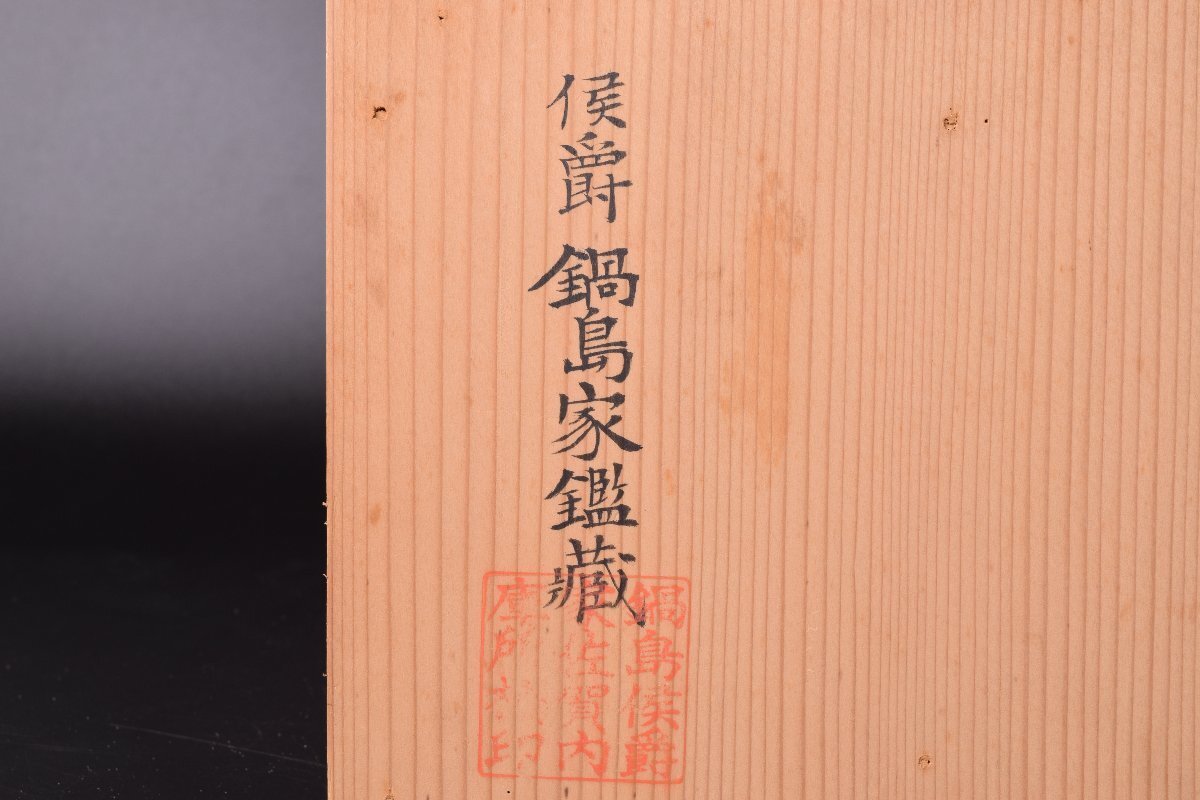 侯爵 鍋島家鑑藏
鍋島侯爵
家佐賀内
庫所蔵印